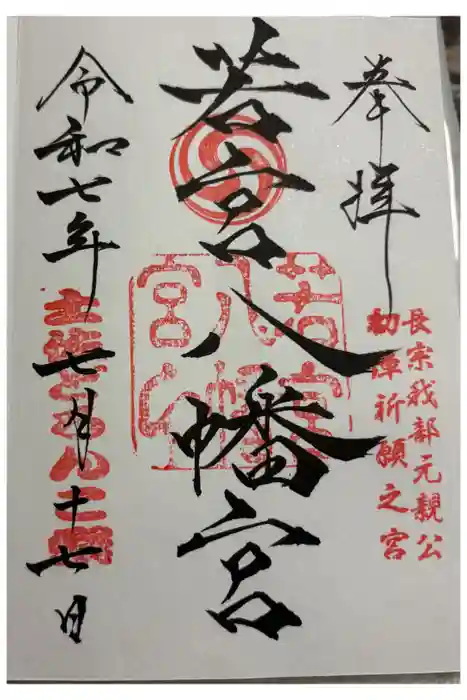 奉拝
長宗我部元親公
初陣祈願之宮
若宮八幡宮
若宮八幡宮
令和七年七月十七日